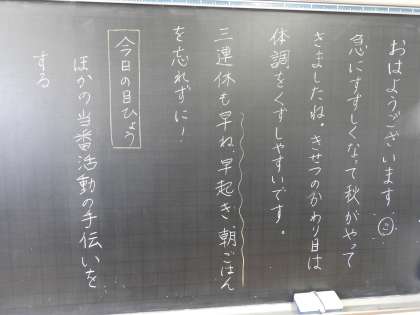 おはようございます
急にすずしくなって秋がやって
きましたね。きせつのかわり目は
体調をくずしやすいです。
三連休も早ね早起き朝ごはん
を忘れずに!
今日の目ひょう
ほかの当番活動の手伝いを
する